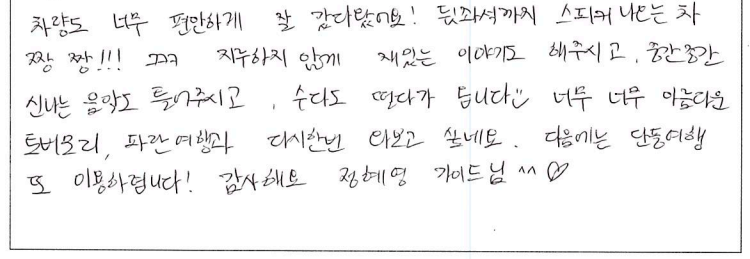 차량도 너무 편안하게 잘 갔다왔어요! 뒷좌석까지 스피커 나오는 차
짱 짱!!! ㅋㅋㅋ 지루하지 않게 재밌는 이야기도 해주시고, 중간중간
신나는 음악도 틀어주시고, 수다도 떨다가 옵니다 너무 너무 아름다운
토버모리, 파란여행과 다시한번 와보고 싶네요. 다음에는 단풍여행
또 이용하렵니다! 감사해요 정혜영 가이드님 ^^ ♡